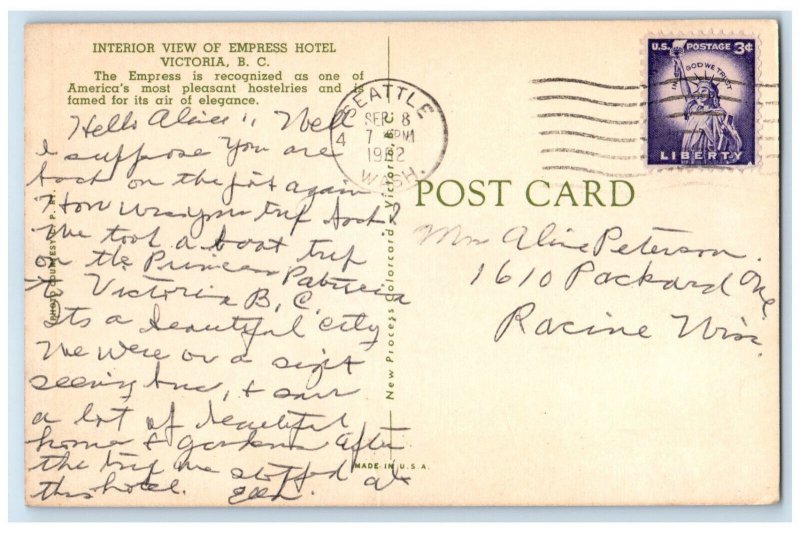 INTERIOR VIEW OF EMPRESS HOTEL
VICTORIA, B. C.
The Empress is recognized as one of
America's most pleasant hostelries and is
famed for its air of elegance.
Hello Aline,, Well
I suppose you are
back on the job again
How was your trip back?
We took a boat trip
on the Princess Patricia
to Victoria B, C,
Its a beautiful city
We were on a sight
seeing bus, & saw
a lot of beautiful
homes & gardens After
the trip we stopped at
this hotel. Ella.
PHOTO COURTESY C. P. RY.
SEATTLE
SEP 8
4 7 PM
1962
WASH.
New Process Colorcard Victoria, B.C.
MADE IN U.S.A.
U.S. POSTAGE 3¢
IN GOD WE TRUST
LIBERTY
POST CARD
Mrs Aline Peterson.
1610 Packard Ave.
Racine Wisc.